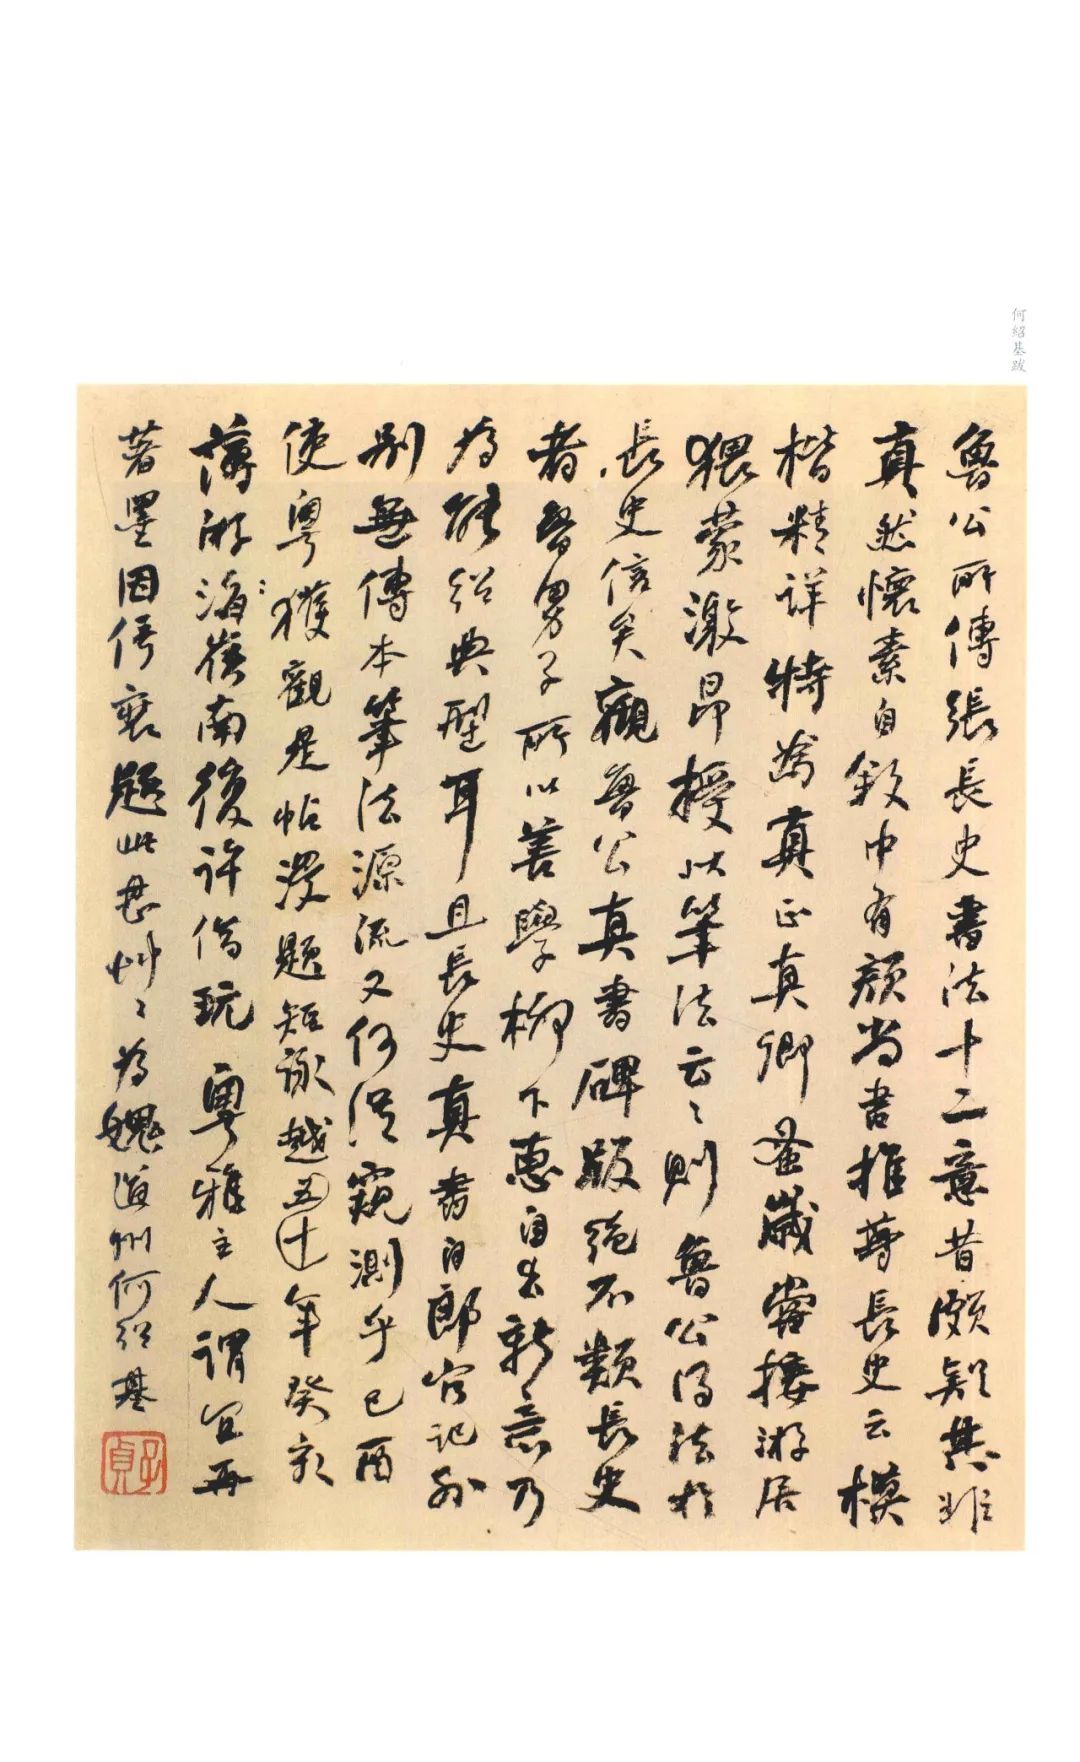 何紹基跋
魯公所傳張長史書法十二意昔頗疑其非
真然懷素自敘中有顏尚書推尊長史云模
楷精詳特為真正真卿蚤歲嘗接游居
猥蒙激昂授以筆法云〻則魯公得法於
長史信矣觀魯公真書碑版絕不類長史
者魯男子所以善學柳下惠自出新意乃
為能紹典型耳且長史真書自郎官記外
別無傳本筆法源流又何從窺測乎己酉
使粵獲觀是帖漫題短詠越五十年癸亥
薄游海嶺南後許借玩粵雅主人謂宜再
著墨因倚裝題此忽艸〻為媿道州何紹基
子貞